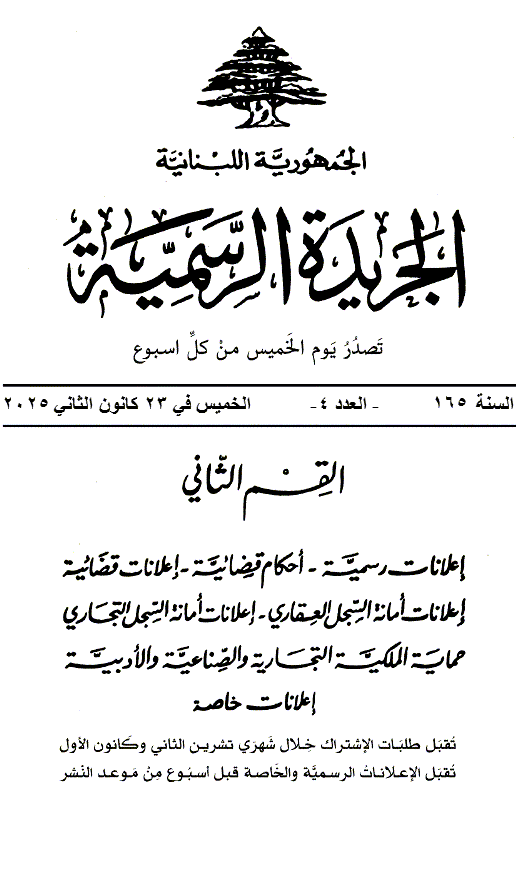 الجمهوريَّة اللبنانيَّة
الجريدة الرسميَّة
تَصدُرُ يَوم الخَميس منْ كلِّ اسبوع
السنة ١٦٥ ـ العدد ٤ـ الخميس في ٢٣ كانون الثاني ٢٠٢٥
القِسْم الثّاني
إعلانات رسميَّة - أحكام قضائيَّة - إعلانات قضائية
إعلانات أمانة السِّجل العِقاري - إعلانات أمانة السِّجل التجاري
حماية الملكيَّة التجارية والصّناعيَّة والأدبيَّة
إعلانات خاصة
تُقبَل طلبَات الإشتراك خِلال شَهرَي تشرين الثاني وكَانون الأول
تُقبَل الإعلاناتُ الرسميَّة والخَاصة قبل أسبُوع مِنْ مَوعد النَشر